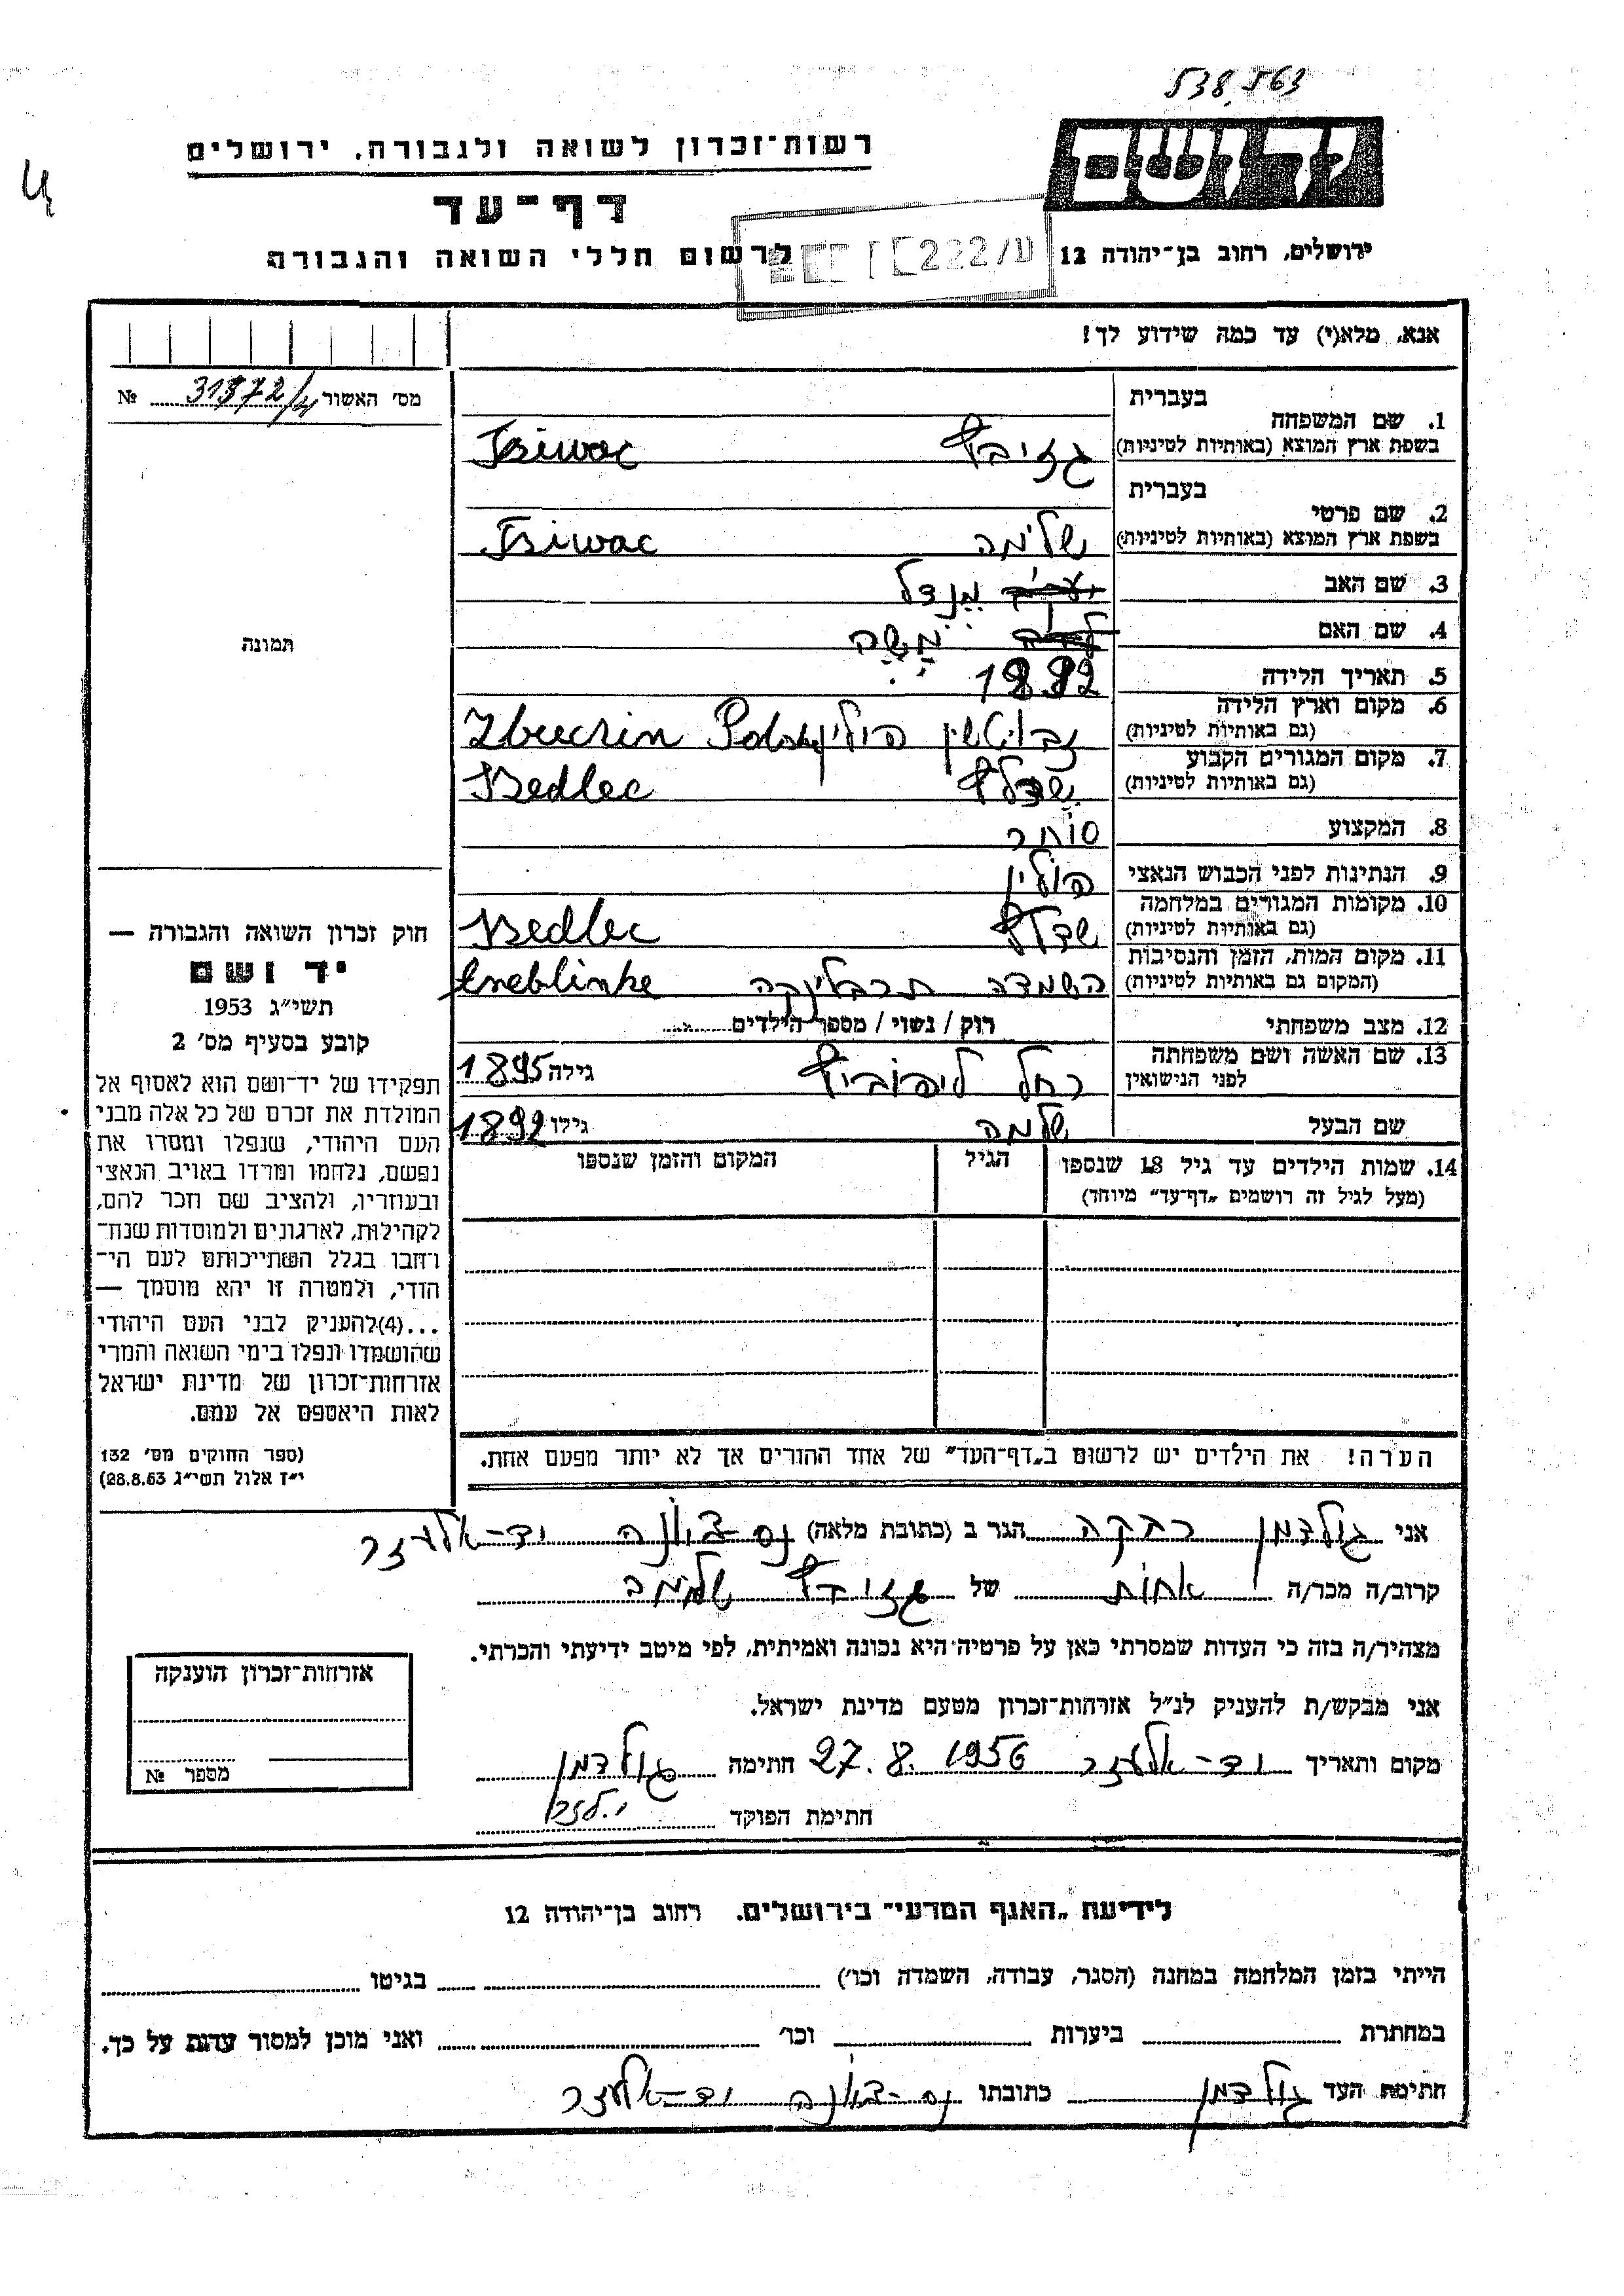 538,563
רשות־זכרון לשואה ולגבורה, ירושלים
יד ושם
דף־עד
לרשום חללי השואה והגבורה
222/ע
ירושלים, רחוב בן־יהודה 12
אנא, מלא(י) עד כמה שידוע לך!
מס׳ האשור 31872/4 №
בעברית
1. שם המשפחה
בשפת ארץ המוצא (באותיות לטיניות)
בעברית
2. שם פרטי שלימה
בשפת ארץ המוצא (באותיות לטיניות)
3. שם האב מנדל
4. שם האם משה
5. תאריך הלידה 1892
6. מקום וארץ הלידה
(גם באותיות לטיניות) פולין
7. מקום המגורים הקבוע
(גם באותיות לטיניות) Bedlec
8. המקצוע סוחר
9. הנתינות לפני הכבוש הנאצי פולין
10. מקומות המגורים במלחמה
(גם באותיות לטיניות)
11. מקום המות, הזמן והנסיבות
(המקום גם באותיות לטיניות) השמדה תרבלינקה
12. מצב משפחתי רוק / נשוי / מספר הילדים
13. שם האשה ושם משפחתה
לפני הנישואין רחל ליפוביץ גילה 1895
שם הבעל שלמה גילו 1892
14. שמות הילדים עד גיל 18 שנספו הגיל המקום והזמן שנספו
(מעל לגיל זה רושמים „דף־עד״ מיוחד)
הערה! את הילדים יש לרשום ב„דף־העד״ של אחד ההורים אך לא יותר מפעם אחת.
תמונה
חוק זכרון השואה והגבורה —
יד ושם
תשי״ג 1953
קובע בסעיף מס׳ 2
תפקידו של יד־ושם הוא לאסוף אל
המולדת את זכרם של כל אלה מבני
העם היהודי, שנפלו ומסרו את
נפשם, נלחמו ומרדו באויב הנאצי
ובעוזריו, ולהציב שם וזכר להם,
לקהילות, לארגונים ולמוסדות שנח־
רחבו בגלל השתייכותם לעם הי־
הודי, ולמטרה זו יהא מוסמך —
...(4)להעניק לבני העם היהודי
שהושמדו ונפלו בימי השואה והמרי
אזרחות־זכרון של מדינת ישראל
לאות היאספם אל עמם.
(ספר החוקים מס׳ 132
י״ז אלול תשי״ג 28.8.53)
אני גולדמן רבקה הגר ב (כתובת מלאה) נס־ציונה יד־אלעזר
קרוב/ה מכר/ה אחות של שלימה
מצהיר/ה בזה כי העדות שמסרתי כאן על פרטיה היא נכונה ואמיתית, לפי מיטב ידיעתי והכרתי.
אני מבקש/ת להעניק לנ״ל אזרחות־זכרון מטעם מדינת ישראל.
מקום ותאריך יד־אלעזר 27.8.1956 חתימה גולדמן
חתימת הפוקד
אזרחות־זכרון הוענקה
מספר №
לידיעת „האגף המדעי״ בירושלים. רחוב בן־יהודה 12
הייתי בזמן המלחמה במחנה (הסגר, עבודה, השמדה וכו׳) בגיטו
במחתרת ביערות וכו׳ ואני מוכן למסור עדות על כך.
חתימת העד גולדמן כתובתו נס־ציונה יד־אלעזר